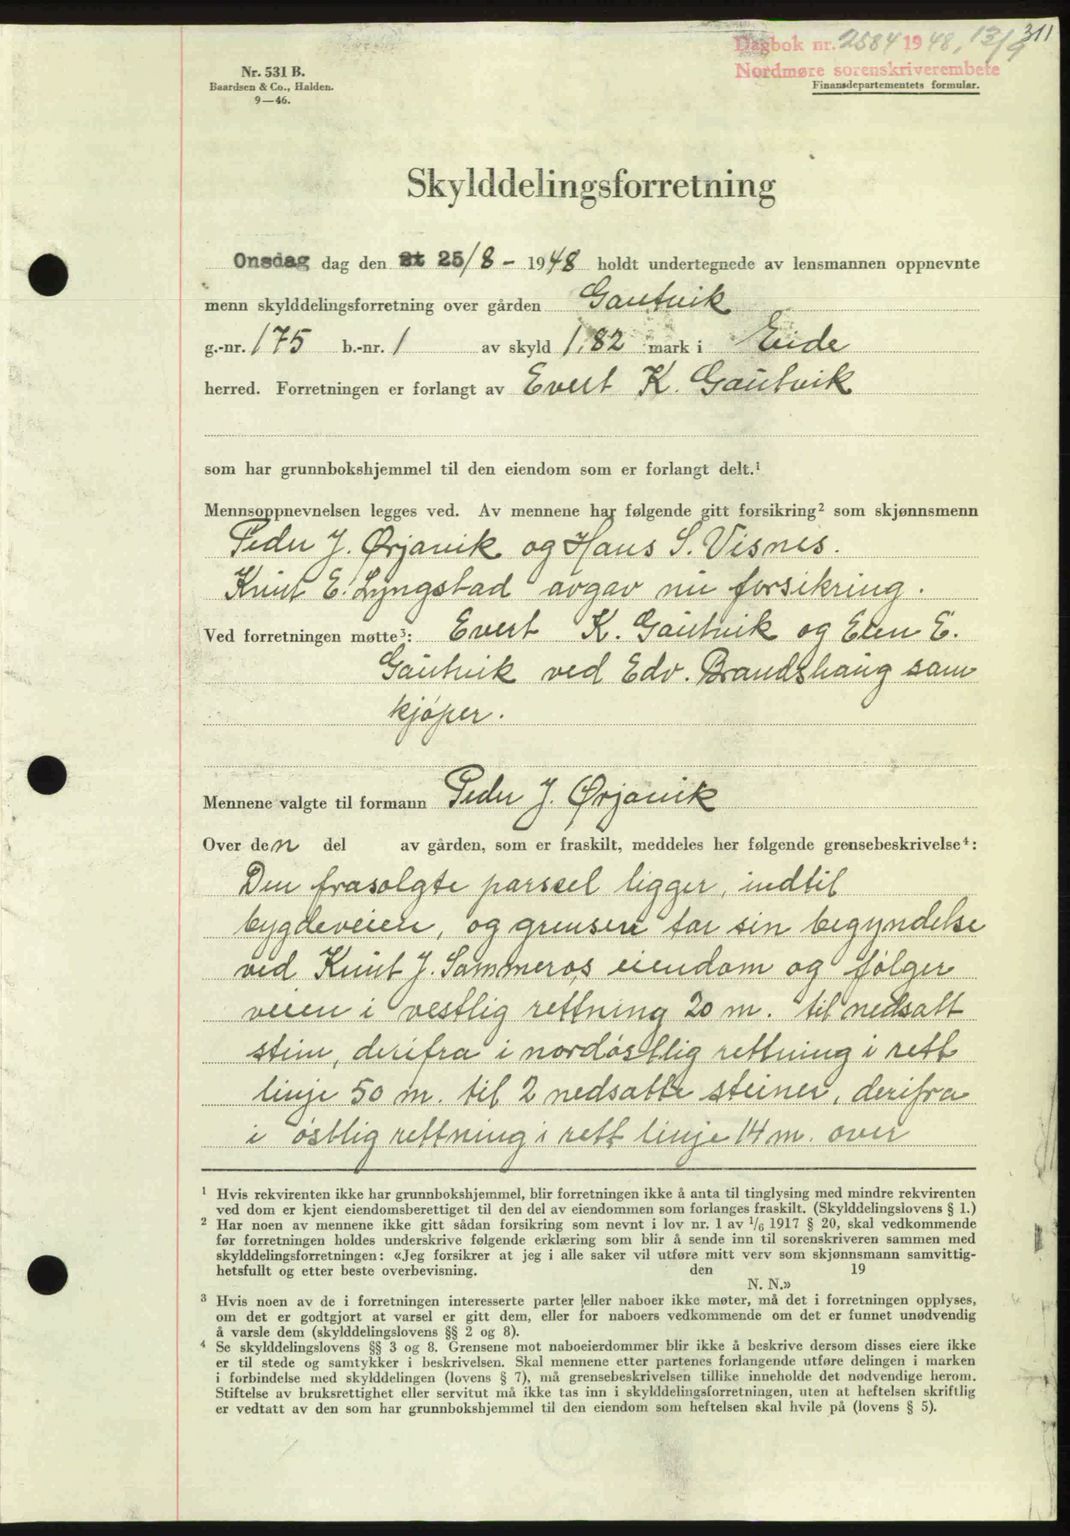 311
Dagbok nr. 2584 1948, 13/9
Nordmøre sorenskriverembete
Finansdepartementets formular.
Nr. 531 B.
Baardsen & Co., Halden.
9—46.
Skylddelingsforretning
Onsdag dag den 25/8 - 1948 holdt undertegnede av lensmannen oppnevnte
menn skylddelingsforretning over gården Gautvik
g.-nr. 175 b.-nr. 1 av skyld 1,82 mark i Eide
herred. Forretningen er forlangt av Evert K. Gautvik
som har grunnbokshjemmel til den eiendom som er forlangt delt.¹
Mennsoppnevnelsen legges ved. Av mennene har følgende gitt forsikring² som skjønnsmenn
Peder J. Ørjavik og Hans S. Visnes.
Knut E. Lyngstad avgav nu forsikring.
Ved forretningen møtte³: Evert K. Gautvik og Elen E.
Gautvik ved Edv. Brandshaug som
kjøper.
Mennene valgte til formann Peder J. Ørjavik
Over den del av gården, som er fraskilt, meddeles her følgende grensebeskrivelse⁴:
Den frasolgte parseel ligger, indtil
bygdeveien, og grensen tar sin begyndelse
ved Knut J. Sammerøs eiendom og følger
veien i vestlig rettning 20 m. til nedsatt
stein, derifra i nordøstlig rettning i rett
linje 50 m. til 2 nedsatte steiner, derifra
i østlig rettning i rett linje 14 m. over
¹ Hvis rekvirenten ikke har grunnbokshjemmel, blir forretningen ikke å anta til tinglysing med mindre rekvirenten
ved dom er kjent eiendomsberettiget til den del av eiendommen som forlanges fraskilt. (Skylddelingslovens § 1.)
² Har noen av mennene ikke gitt sådan forsikring som nevnt i lov nr. 1 av 1/6 1917 § 20, skal vedkommende
før forretningen holdes underskrive følgende erklæring som blir å sende inn til sorenskriveren sammen med
skylddelingsforretningen: «Jeg forsikrer at jeg i alle saker vil utføre mitt verv som skjønnsmann samvittig-
hetsfullt og etter beste overbevisning. den 19
N. N.»
³ Hvis noen av de i forretningen interesserte parter eller naboer ikke møter, må det i forretningen opplyses,
om det er godtgjort at varsel er gitt dem, eller for naboers vedkommende om det er funnet unødvendig
å varsle dem (skylddelingslovens §§ 2 og 8).
⁴ Se skylddelingslovens §§ 3 og 8. Grensene mot naboeierdommer blir ikke å beskrive dersom disses eiere ikke
er til stede og samtykker i beskrivelsen. Skal mennene etter partenes forlangende utføre delingen i marken
i forbindelse med skylddelingen (lovens § 7), må grensebeskrivelsen tillike inneholde det nødvendige herom.
Stiftelse av bruksrettighet eller servitut må ikke tas inn i skylddelingsforretningen, uten at heftelsen skriftlig
er vedtatt av den som har grunnbokshjemmel til den eiendom som heftelsen skal hvile på (lovens § 5).